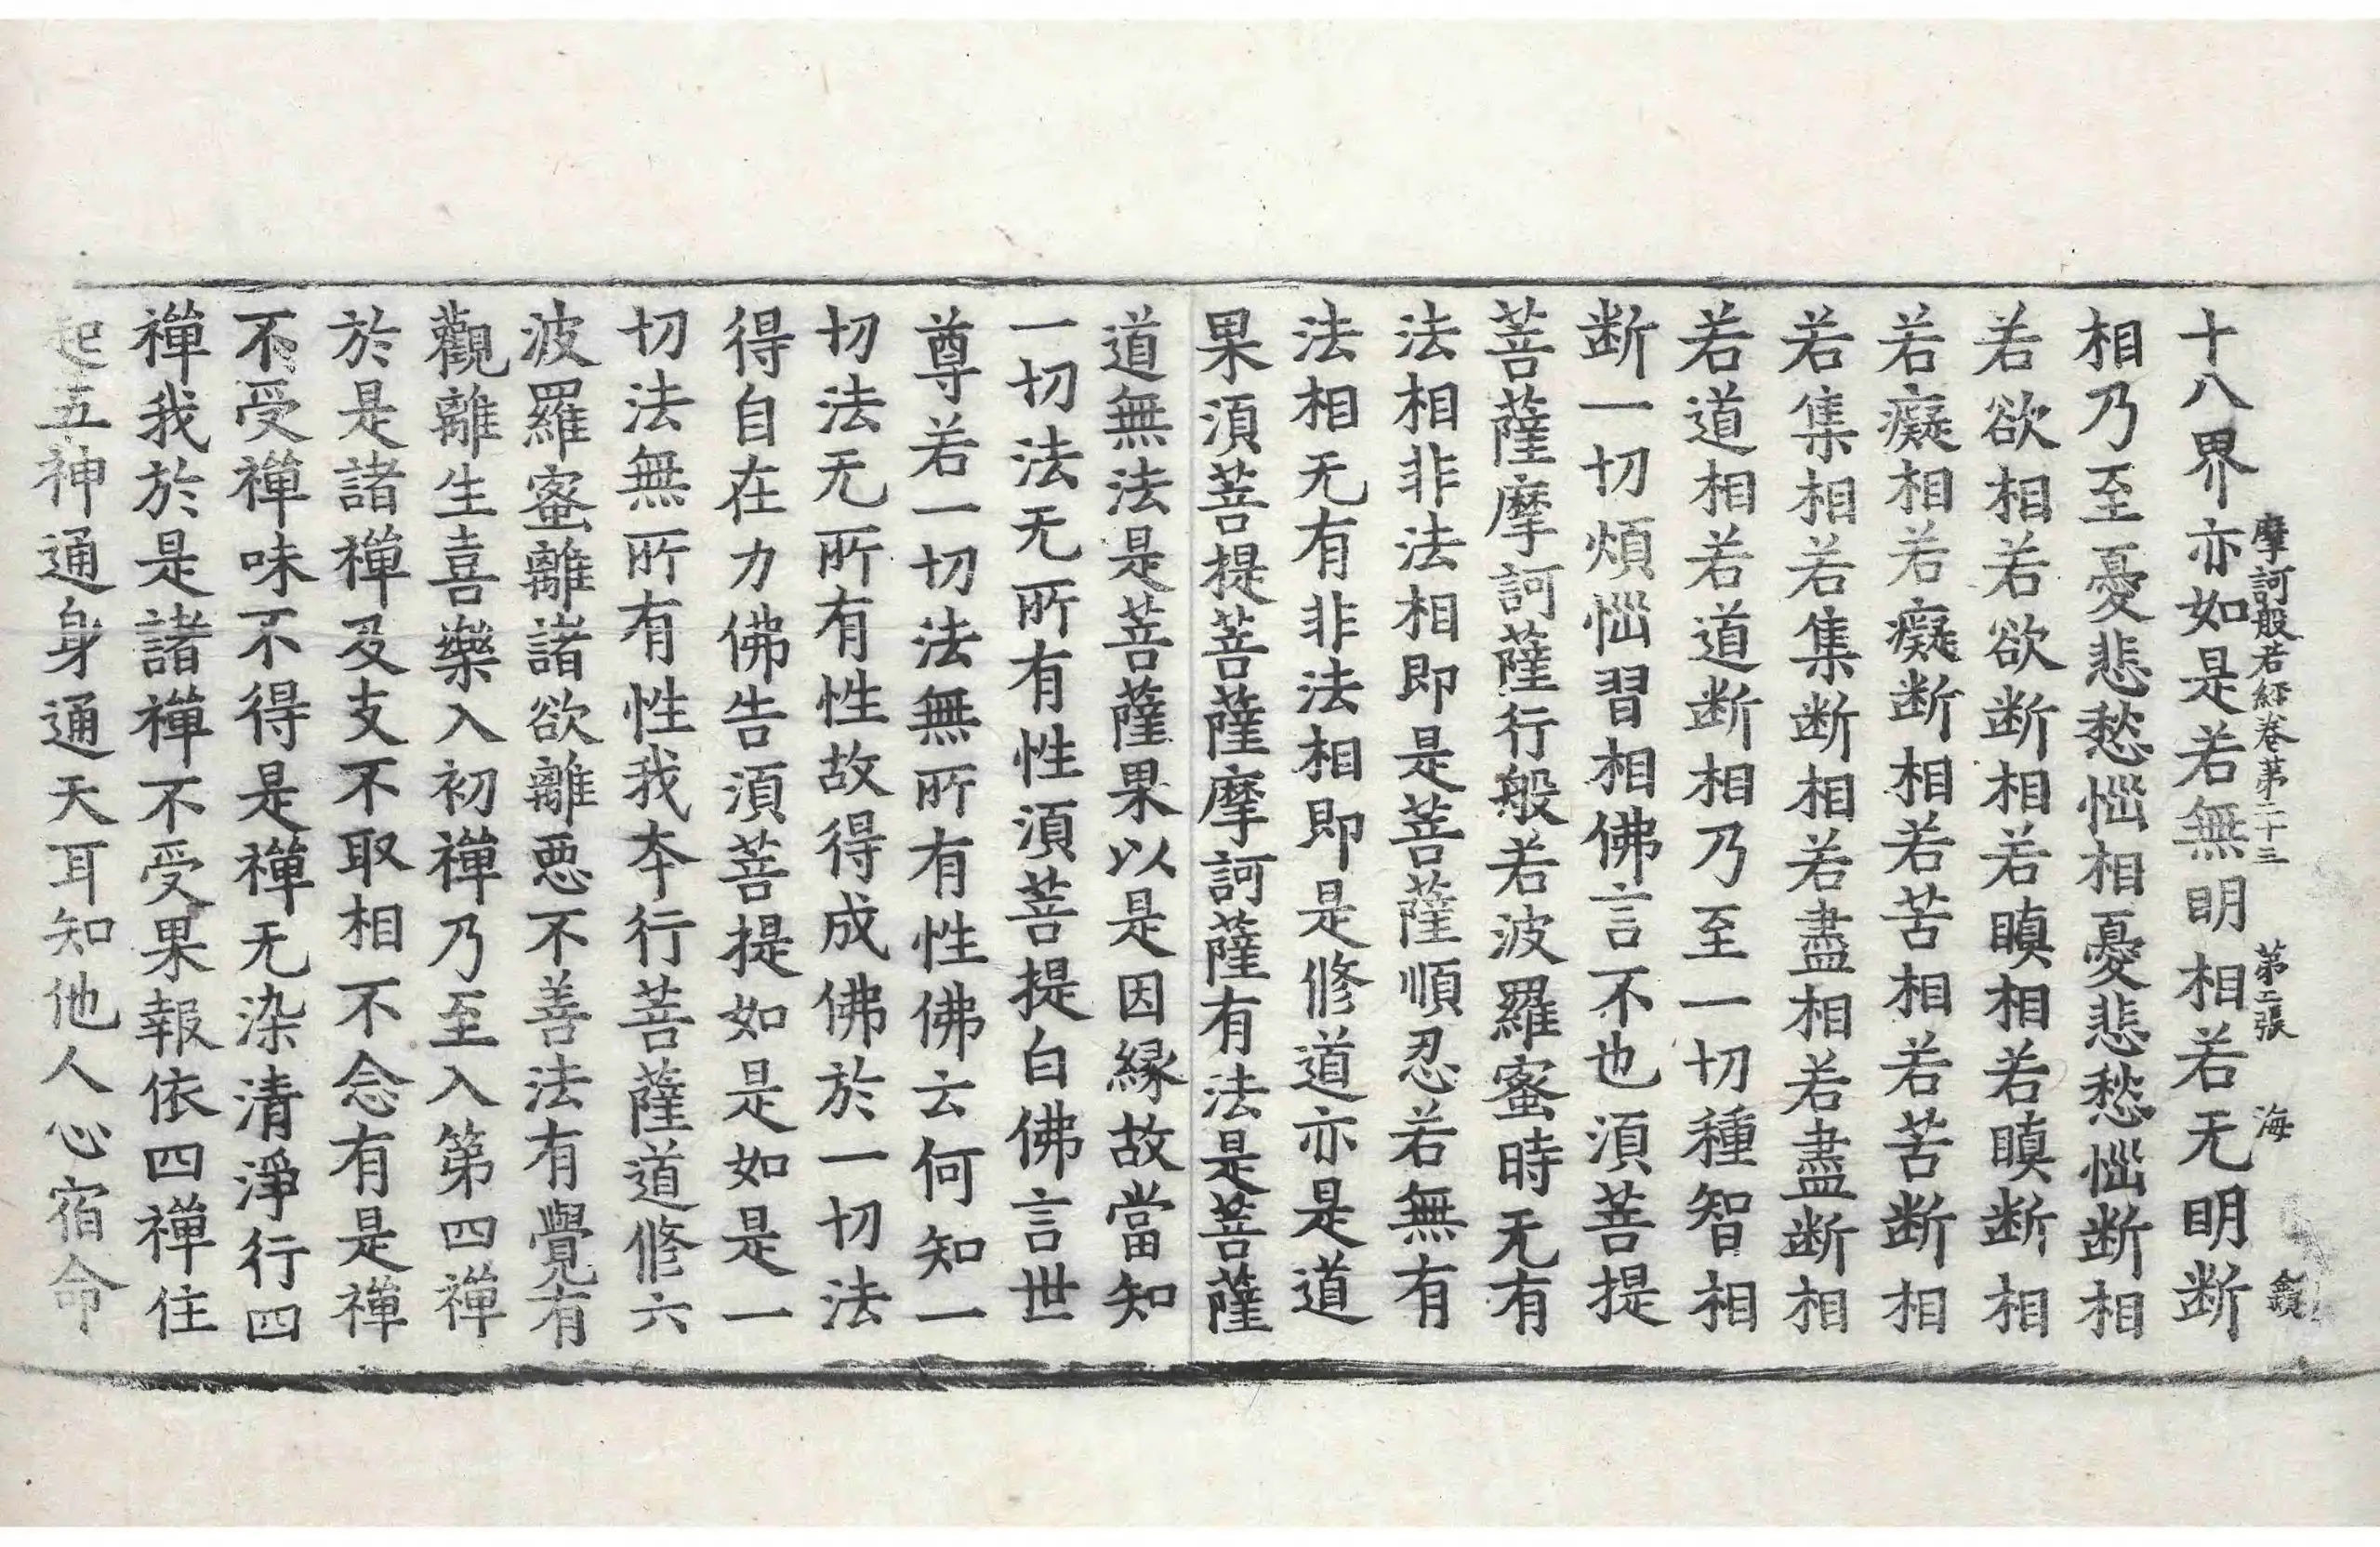 摩訶般若經卷第二十三 第二張 海 鏡
十八界亦如是若無明相若无明断
相乃至憂悲愁惱相憂悲愁惱断相
若欲相若欲断相若瞋相若瞋断相
若癡相若癡断相若苦相若苦断相
若集相若集断相若盡相若盡断相
若道相若道断相乃至一切種智相
断一切煩惱習相佛言不也須菩提
菩薩摩訶薩行般若波羅蜜時无有
法相非法相即是菩薩順忍若無有
法相无有非法相即是修道亦是道
果須菩提菩薩摩訶薩有法是菩薩
道無法是菩薩果以是因緣故當知
一切法无所有性須菩提白佛言世
尊若一切法無所有性佛云何知一
切法无所有性故得成佛於一切法
得自在力佛告須菩提如是如是一
切法無所有性我夲行菩薩道修六
波羅蜜離諸欲離惡不善法有覺有
觀離生喜樂入初禪乃至入第四禪
於是諸禪及支不取相不念有是禪
不受禪味不得是禪无染清淨行四
禪我於是諸禪不受果報依四禪住
起五神通身通天耳知他人心宿命